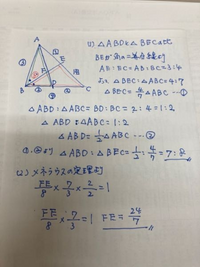 A
B
C
D
E
F
③
④
②
②
(1) △ABDと△BECの比
BEが∠Bの二等分線より
AE:EC=AB:BC=3:4
よって △BEC:△ABC=4:7
△BEC=4/7△ABC…①
△ABD:△ABC=BD:BC=2:4=1:2
△ABD:△ABC=1:2
△ABD=1/2△ABC…②
①,②より △ABD:△BEC=1/2:4/7=7:8
(2) メネラウスの定理より
FE/8×7/3×2/2=1
FE/8×7/3=1 FE=24/7